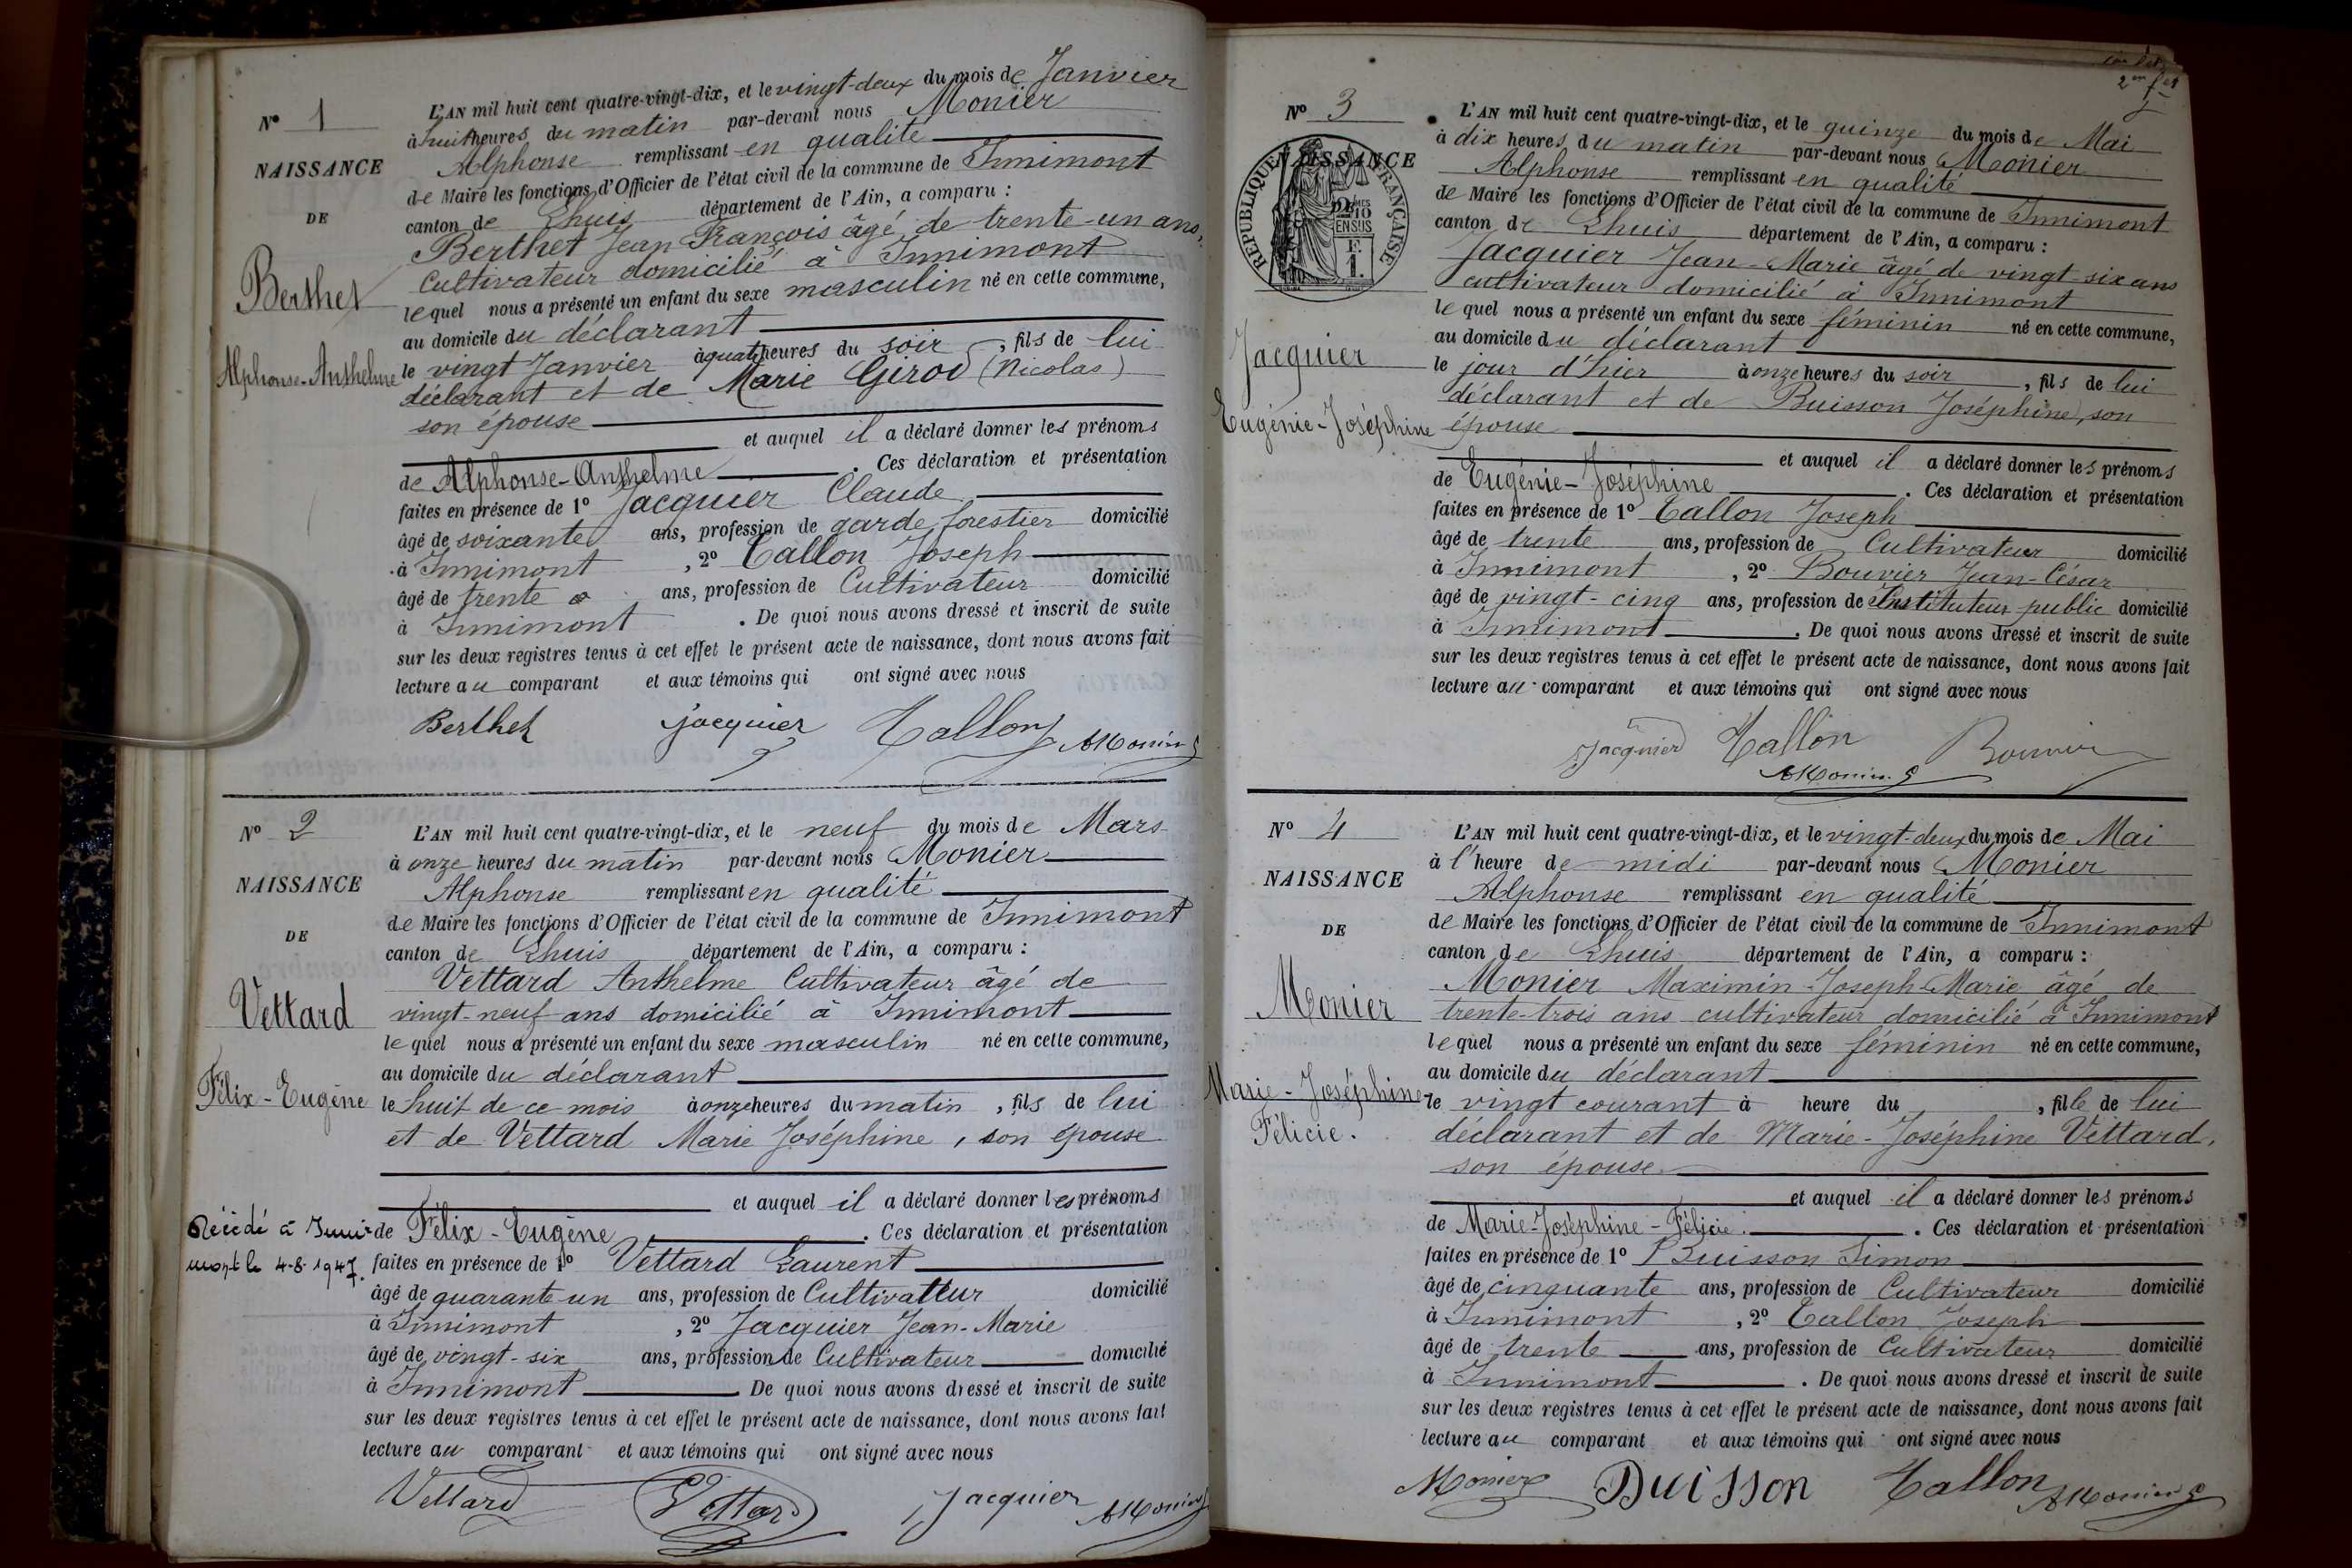 N° 1
NAISSANCE
DE
Berthet
Alphonse-Anthelme
L'AN mil huit cent quatre-vingt-dix, et le vingt-deux du mois de Janvier
à huit heures du matin par-devant nous Monier
Alphonse remplissant en qualité
de Maire les fonctions d'Officier de l'état civil de la commune de Innimont
canton de Lhuis département de l'Ain, a comparu :
Berthet Jean François âgé de trente-un ans,
Cultivateur domicilié à Innimont
lequel nous a présenté un enfant du sexe masculin né en cette commune,
au domicile du déclarant
le vingt Janvier à quatre heures du soir, fils de lui
déclarant et de Marie Girod (Nicolas)
son épouse
et auquel il a déclaré donner les prénoms
de Alphonse-Anthelme. Ces déclaration et présentation
faites en présence de 1° Jacquier Claude
âgé de soixante ans, profession de garde forestier domicilié
à Innimont, 2° Tallon Joseph
âgé de trente ans, profession de Cultivateur domicilié
à Innimont. De quoi nous avons dressé et inscrit de suite
sur les deux registres tenus à cet effet le présent acte de naissance, dont nous avons fait
lecture au comparant et aux témoins qui ont signé avec nous
Berthet Jacquier Tallon AMonier
N° 2
NAISSANCE
DE
Vettard
Félix-Eugène
Décédé à Inni-
mont le 4-8-1947.
L'AN mil huit cent quatre-vingt-dix, et le neuf du mois de Mars
à onze heures du matin par-devant nous Monier
Alphonse remplissant en qualité
de Maire les fonctions d'Officier de l'état civil de la commune de Innimont
canton de Lhuis département de l'Ain, a comparu :
Vettard Anthelme Cultivateur âgé de
vingt-neuf ans domicilié à Innimont
lequel nous a présenté un enfant du sexe masculin né en cette commune,
au domicile du déclarant
le huit de ce mois à onze heures du matin, fils de lui
et de Vettard Marie Joséphine, son épouse
et auquel il a déclaré donner les prénoms
de Félix-Eugène. Ces déclaration et présentation
faites en présence de 1° Vettard Laurent
âgé de quarante-un ans, profession de Cultivatteur domicilié
à Innimont, 2° Jacquier Jean-Marie
âgé de vingt-six ans, profession de Cultivateur domicilié
à Innimont. De quoi nous avons dressé et inscrit de suite
sur les deux registres tenus à cet effet le présent acte de naissance, dont nous avons fait
lecture au comparant et aux témoins qui ont signé avec nous
Vettard Vettard Jacquier AMonier
2en
N° 3
NAISSANCE
DE
RÉPUBLIQUE FRANÇAISE
2/10MES
EN SUS
F.
1.
Jacquier
Eugénie-Joséphine
L'AN mil huit cent quatre-vingt-dix, et le quinze du mois de Mai
à dix heures du matin par-devant nous Monier
Alphonse remplissant en qualité
de Maire les fonctions d'Officier de l'état civil de la commune de Innimont
canton de Lhuis département de l'Ain, a comparu :
Jacquier Jean-Marie âgé de vingt-six ans
cultivateur domicilié à Innimont
lequel nous a présenté un enfant du sexe féminin né en cette commune,
au domicile du déclarant
le jour d'hier à onze heures du soir, fils de lui
déclarant et de Buisson Joséphine, son
épouse
et auquel il a déclaré donner les prénoms
de Eugénie-Joséphine. Ces déclaration et présentation
faites en présence de 1° Tallon Joseph
âgé de trente ans, profession de Cultivateur domicilié
à Innimont, 2° Bouvier Jean-César
âgé de vingt-cinq ans, profession de Instituteur public domicilié
à Innimont. De quoi nous avons dressé et inscrit de suite
sur les deux registres tenus à cet effet le présent acte de naissance, dont nous avons fait
lecture au comparant et aux témoins qui ont signé avec nous
Jacquier Tallon Bouvier
AMonier
N° 4
NAISSANCE
DE
Monier
Marie-Joséphine
Félicie.
L'AN mil huit cent quatre-vingt-dix, et le vingt-deux du mois de Mai
à l'heure de midi par-devant nous Monier
Alphonse remplissant en qualité
de Maire les fonctions d'Officier de l'état civil de la commune de Innimont
canton de Lhuis département de l'Ain, a comparu :
Monier Maximin-Joseph-Marie âgé de
trente-trois ans cultivateur domicilié à Innimont
lequel nous a présenté un enfant du sexe féminin né en cette commune,
au domicile du déclarant
le vingt courant à heure du, fille de lui
déclarant et de Marie-Joséphine Vettard,
son épouse
et auquel il a déclaré donner les prénoms
de Marie-Joséphine-Félicie. Ces déclaration et présentation
faites en présence de 1° Buisson Simon
âgé de cinquante ans, profession de Cultivateur domicilié
à Innimont, 2° Tallon Joseph
âgé de trente ans, profession de Cultivateur domicilié
à Innimont. De quoi nous avons dressé et inscrit de suite
sur les deux registres tenus à cet effet le présent acte de naissance, dont nous avons fait
lecture au comparant et aux témoins qui ont signé avec nous
Monier Buisson Tallon AMonier